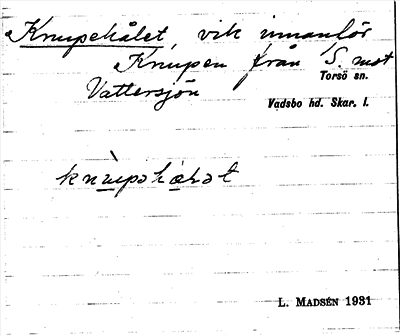 Knupehålet, vik innanför
Knupen från S. mot
Torsö sn.
Vattersjön
Vadsbo hd. Skar. l.
knùpəhaɷət
L. MADSÉN 1931